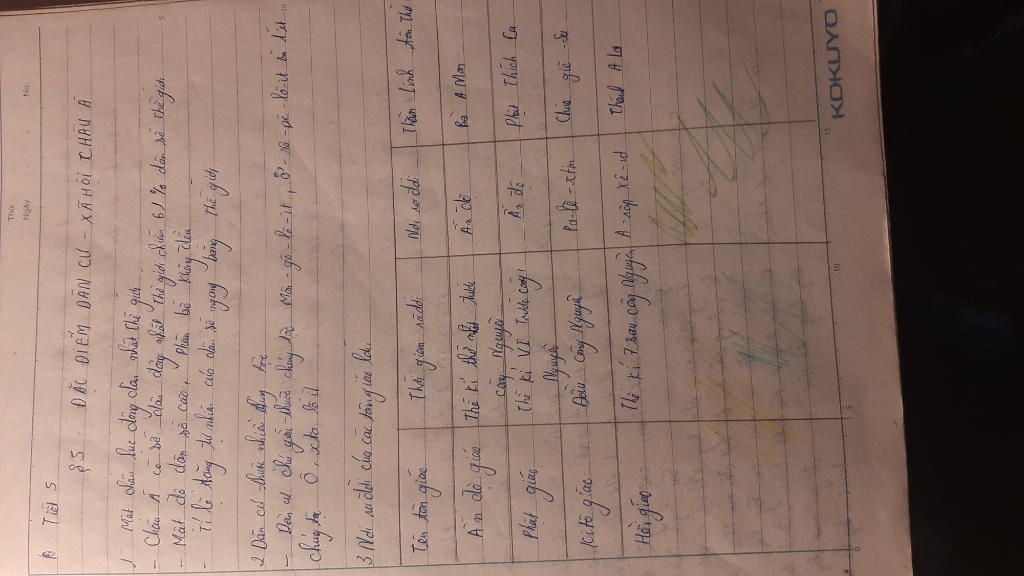 No.
Thứ
Ngày
Tiết 5
§5. ĐẶC ĐIỂM DÂN CƯ - XÃ HỘI CHÂU Á
1 Một châu lục đông dân nhất thế giới.
- Châu Á có số dân đông nhất thế giới chiếm 61% dân số thế giới.
- Mật độ dân số cao, phân bố không đều
- Tỉ lệ tăng tự nhiên của dân số ngang bằng thế giới
2 Dân cư thuộc nhiều chủng tộc
- Dân cư chủ yếu thuộc chủng tộc Môn-gô-lô-ít, Ơ-rô-pê-ô-ít và ít
chủng tộc Ô-xtra-lô-ít
3. Nơi ra đời của các tôn giáo lớn.
Tên tôn giáo Thời gian ra đời Nơi ra đời Thần linh tôn thờ
Ấn độ giáo Thế kỉ thứ nhất trước công Nguyên Ấn độ Bà A Môn
Phật giáo Thế kỉ VI Trước công Nguyên Ấn độ Phật Thích Ca
Ki tô giáo Đầu Công Nguyên Pa-lê-xtin Chúa giê-su
Hồi giáo Thế kỉ 7 sau công Nguyên A-rập xê-út Thánh A la
KOKUYO
5
10
0
5
10
15